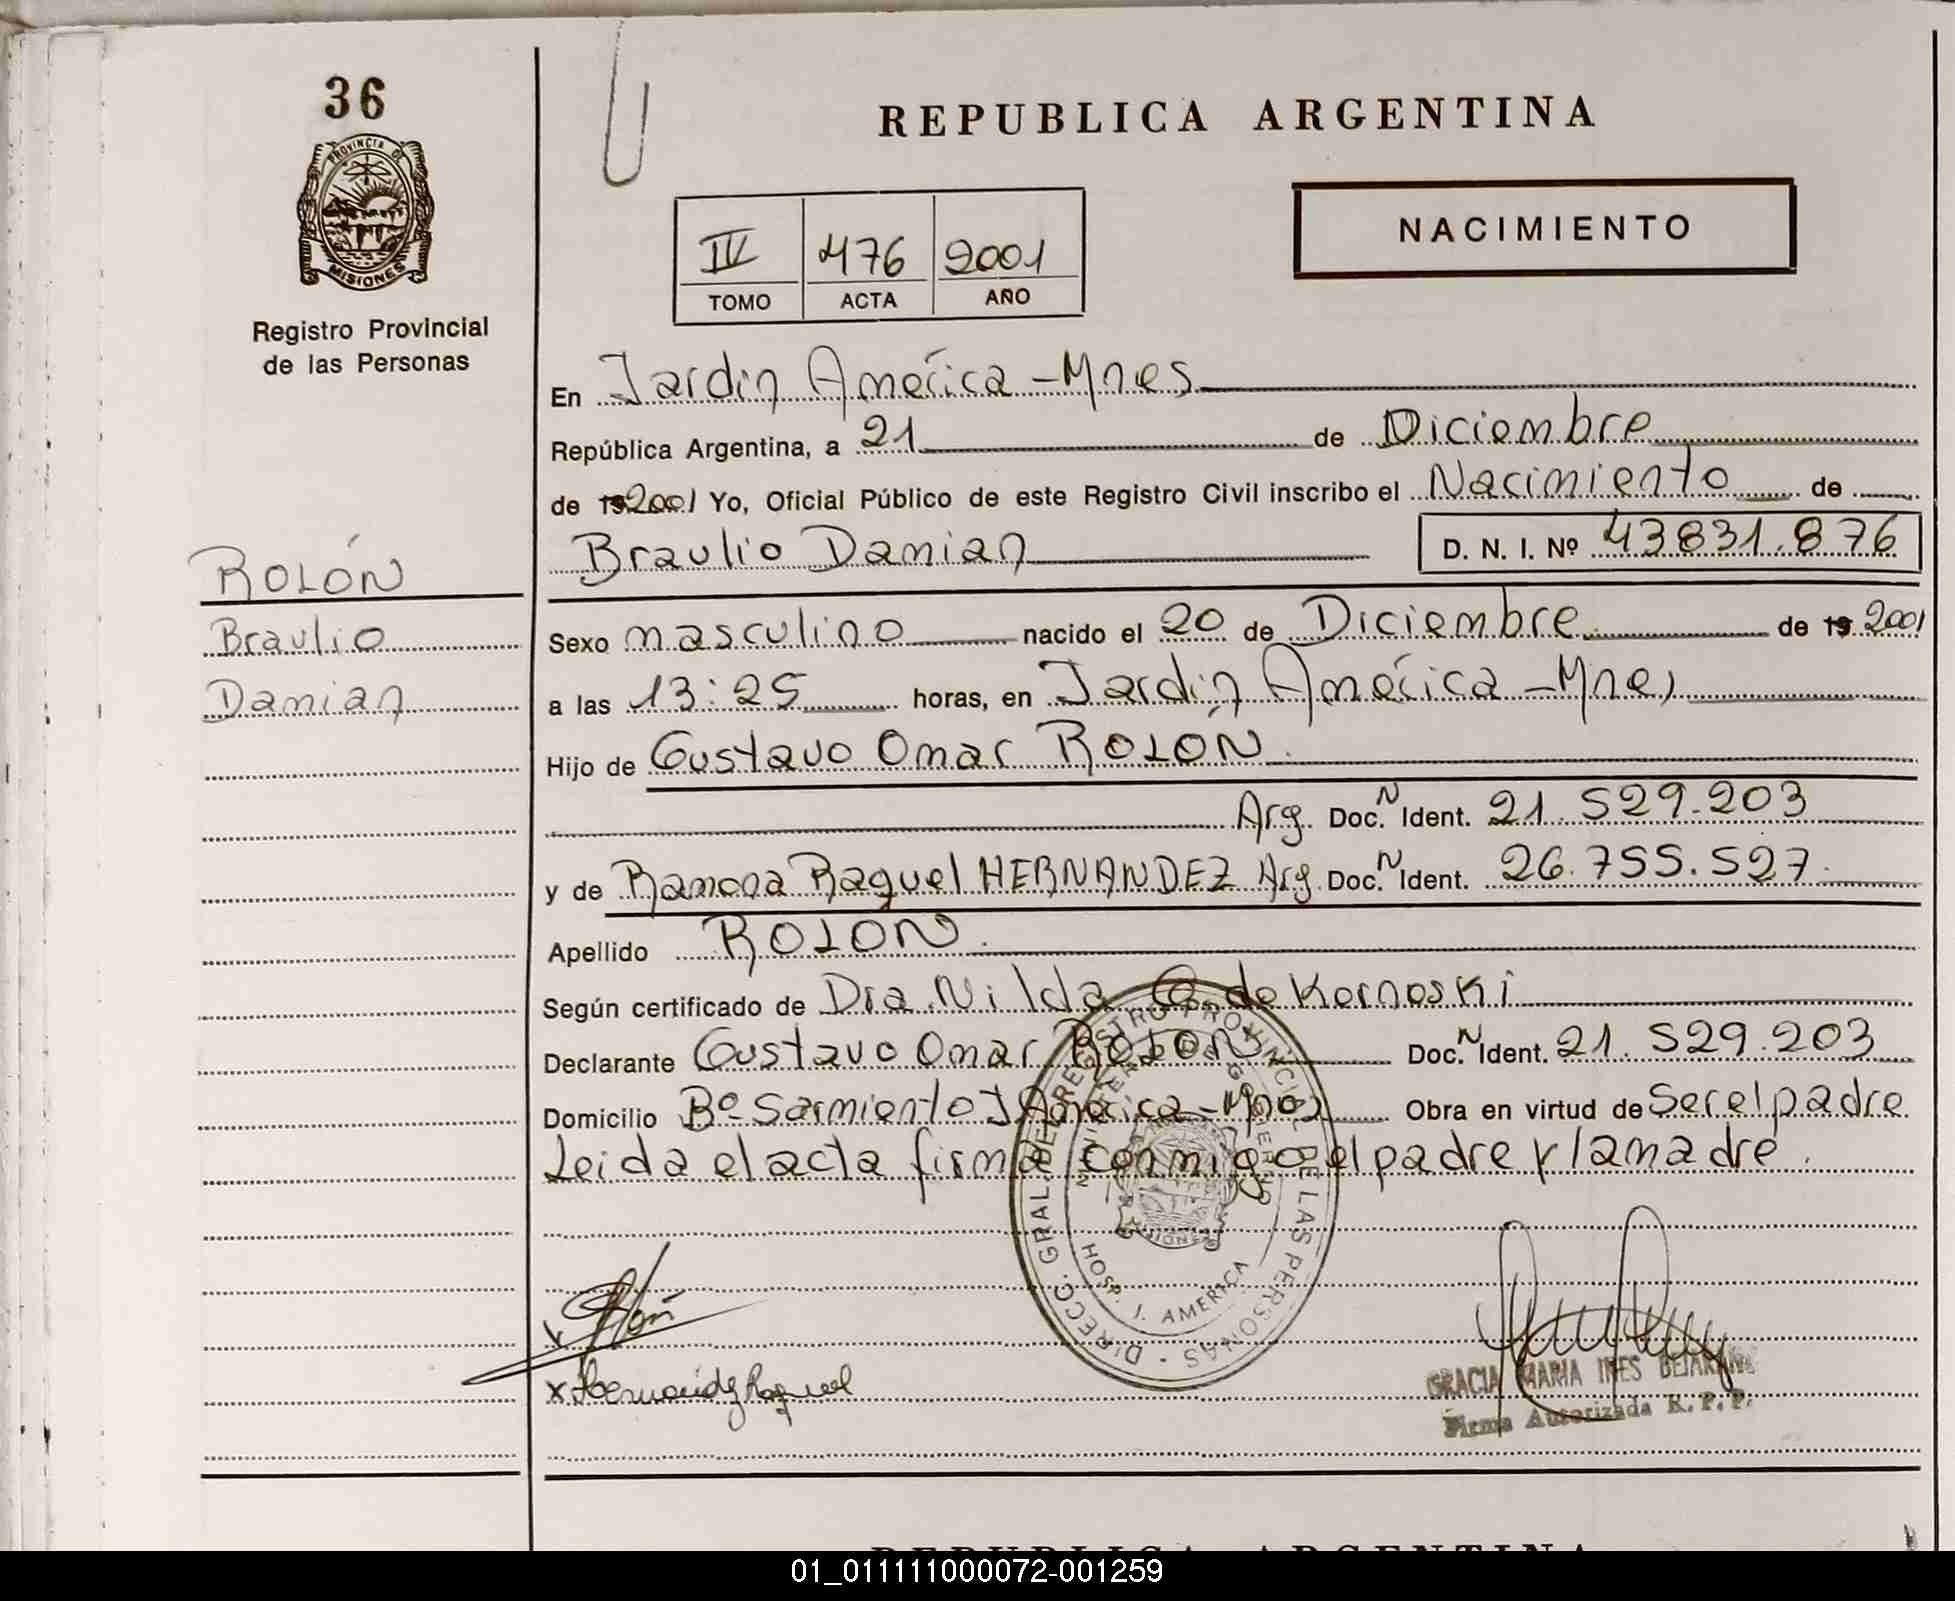 36
PROVINCIA DE
MISIONES
Registro Provincial
de las Personas
REPUBLICA ARGENTINA
NACIMIENTO
IV 476 2001
TOMO ACTA AÑO
En Jardin América - Mnes
República Argentina, a 21 de Diciembre
de 19 2001 Yo, Oficial Público de este Registro Civil inscribo el Nacimiento de
Braulio Damian D. N. I. Nº 43831.876
ROLÓN
Braulio
Damian
Sexo masculino nacido el 20 de Diciembre de 19 2001
a las 13:25 horas, en Jardin América - Mnes
Hijo de Gustavo Omar ROLÓN.
Arg. Doc. N Ident. 21.529.203
y de Ramona Raquel HERNANDEZ Arg. Doc. N Ident. 26.755.527.
Apellido ROLON.
Según certificado de Dra. Nilda G. de Kornoski
Declarante Gustavo Omar ROLON Doc. N Ident. 21.529.203
Domicilio Bº Sarmiento J América - Mnes Obra en virtud de Ser el padre
Leida el acta firma conmigo el padre y la madre.
DIRECC. GRAL. DEL REGISTRO PROVINCIAL DE LAS PERSONAS
HOSP. J. AMERICA
MISIONES
x Hernandez Raquel
GRACIA MARIA INES BEJARANO
Firma Autorizada R. P. P.
REPUBLICA ARGENTINA
01_011111000072-001259